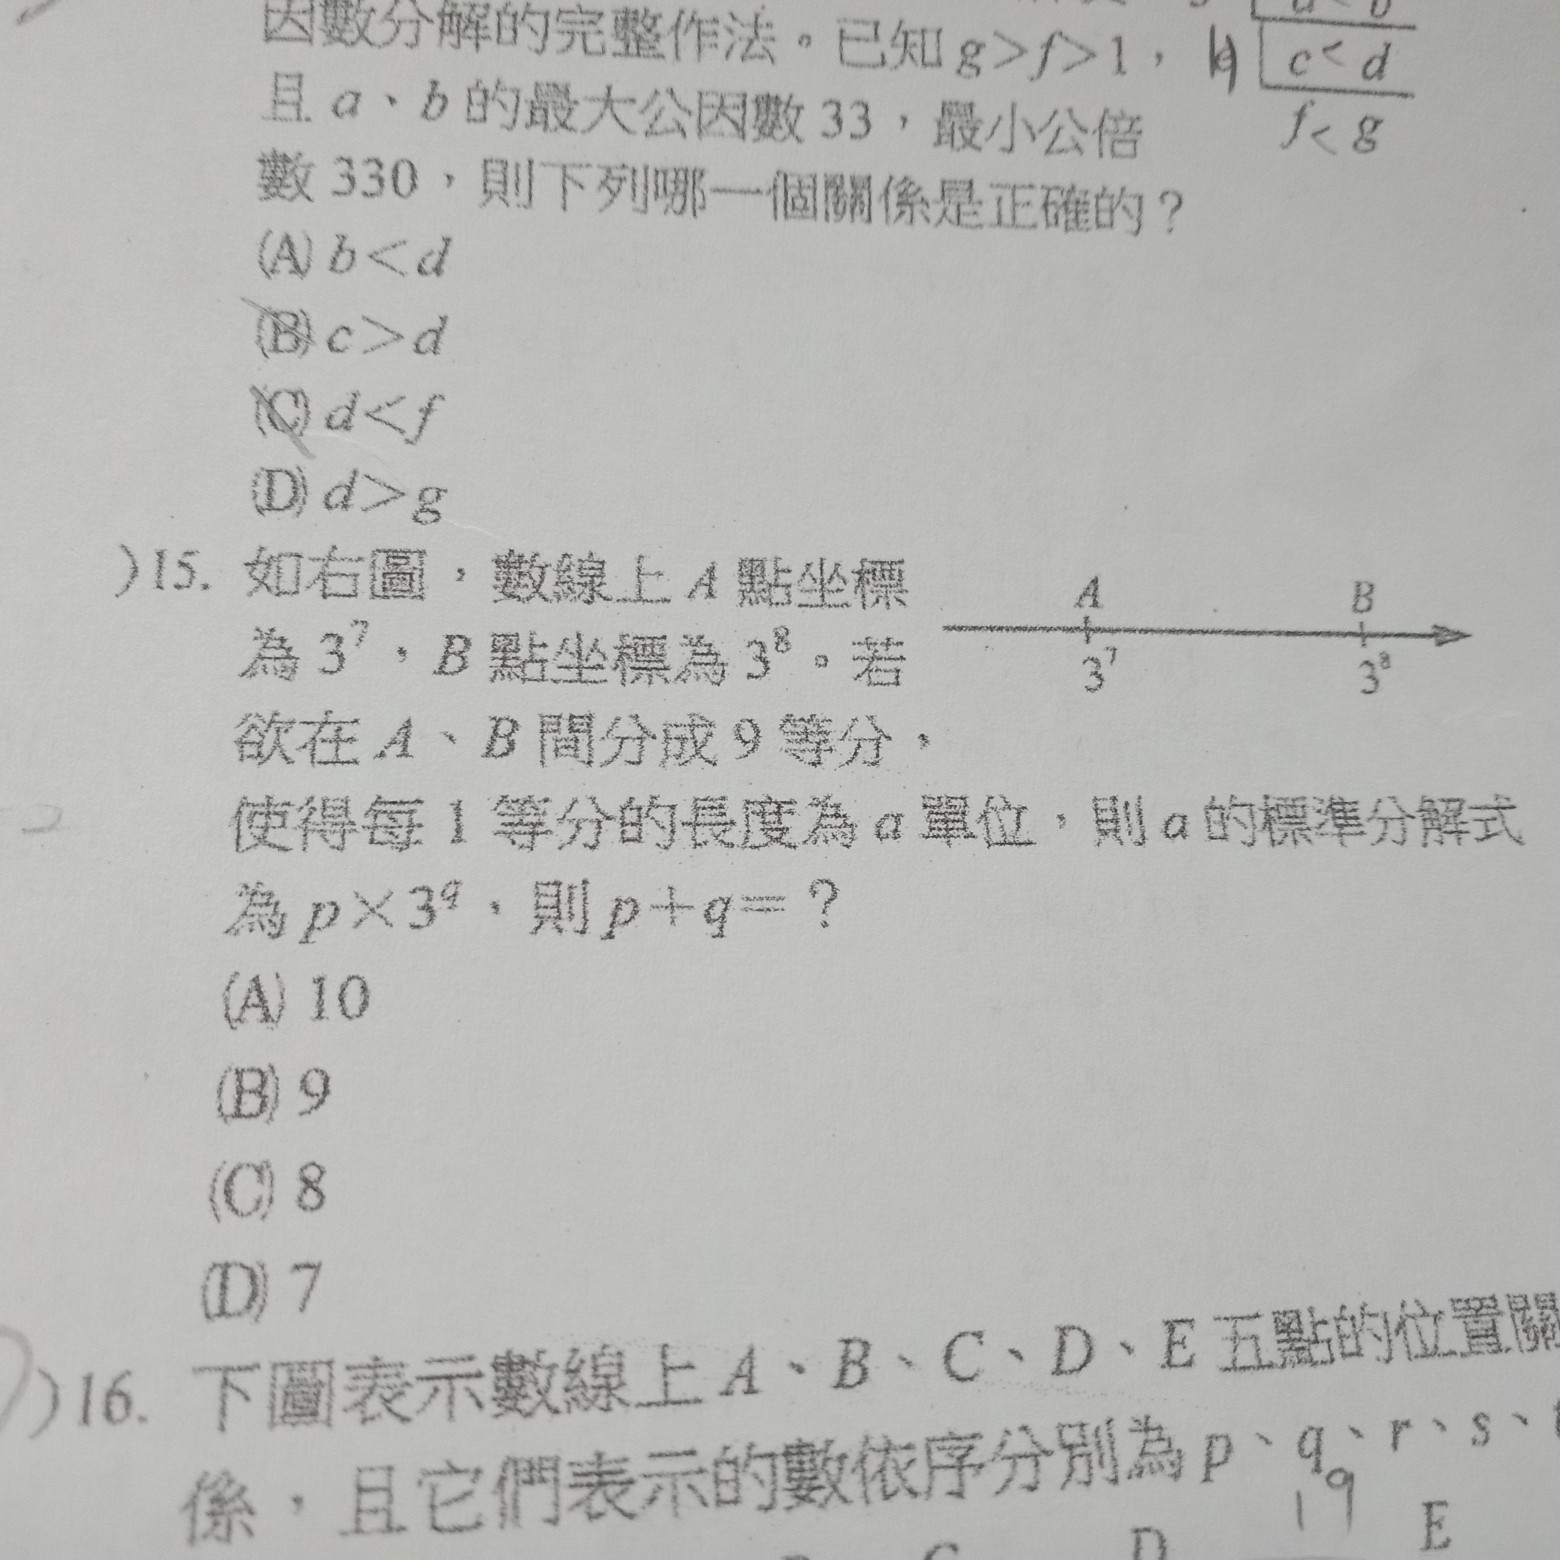 因數分解的完整作法。已知 g>f>1，
c< d
且 a、b 的最大公因數 33，最小公倍
f< g
數 330，則下列哪一個關係是正確的？
(A) b<d
(B) c>d
(C) d<f
(D) d>g
)15. 如右圖，數線上 A 點坐標
A B
為 3⁷，B 點坐標為 3⁸。若
3⁷ 3⁸
欲在 A、B 間分成 9 等分，
使得每 1 等分的長度為 a 單位，則 a 的標準分解式
為 p×3^q，則 p+q=？
(A) 10
(B) 9
(C) 8
(D) 7
)16. 下圖表示數線上 A、B、C、D、E 五點的位置關
係，且它們表示的數依序分別為 p、q、r、s、
19
D E